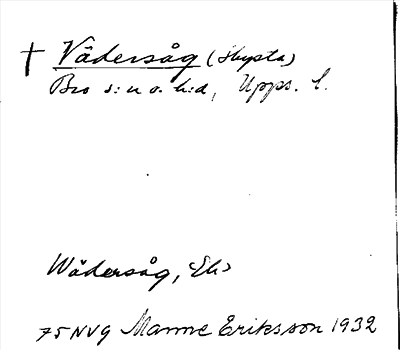 † Vädersåg (Hysta)
Bro s:n o. h:d, Upps. l.
Wädersåg, Ek>
75NV9 Manne Eriksson 1932